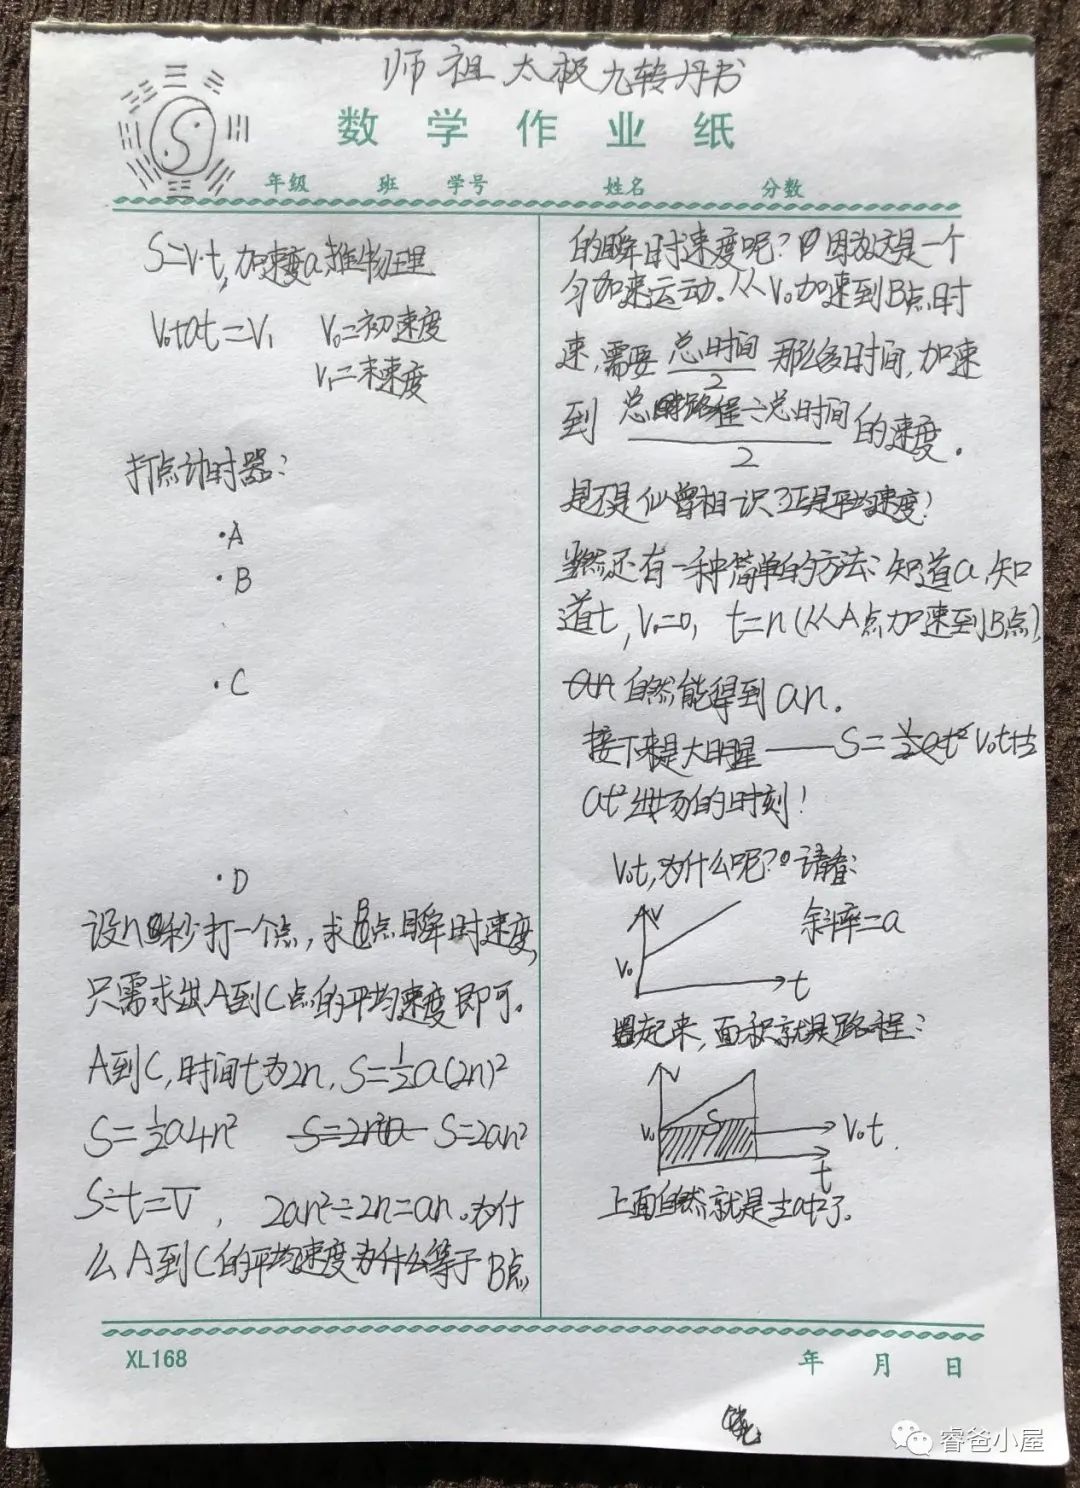 师祖太极九转丹书
数学作业纸
年级 班 学号 姓名 分数
S=v·t,加速度a,推物理
V₀+at=V₁ V₀=初速度
V₁=末速度
打点计时器:
·A
·B
·C
·D
设n秒打一个点,求B点瞬时速度,
只需求出A到C点的平均速度即可。
A到C,时间t为2n,S=½a(2n)²
S=½a4n² S=2n²a S=2an²
S÷t=v̅, 2an²÷2n=an。为什
么A到C的平均速度为什么等于B点
的瞬时速度呢?因为这是一个
匀加速运动。从V₀加速到B点时
速,需要 总时间/2 那么多时间,加速
到 总路程÷总时间/2 的速度。
是不是似曾相识?正是平均速度!
当然还有一种简单的方法:知道a,知
道t,V₀=0, t=n(从A点加速到B点),
an 自然能得到an。
接下来是大明星——S=½at² V₀t+½
at²出场的时刻!
V₀t,为什么呢?请看:
V
V₀
t
斜率=a
圈起来,面积就是路程:
V
S
V₀
V₀t.
t
上面自然就是½at²了。
XL168
年 月 日
睿爸小屋